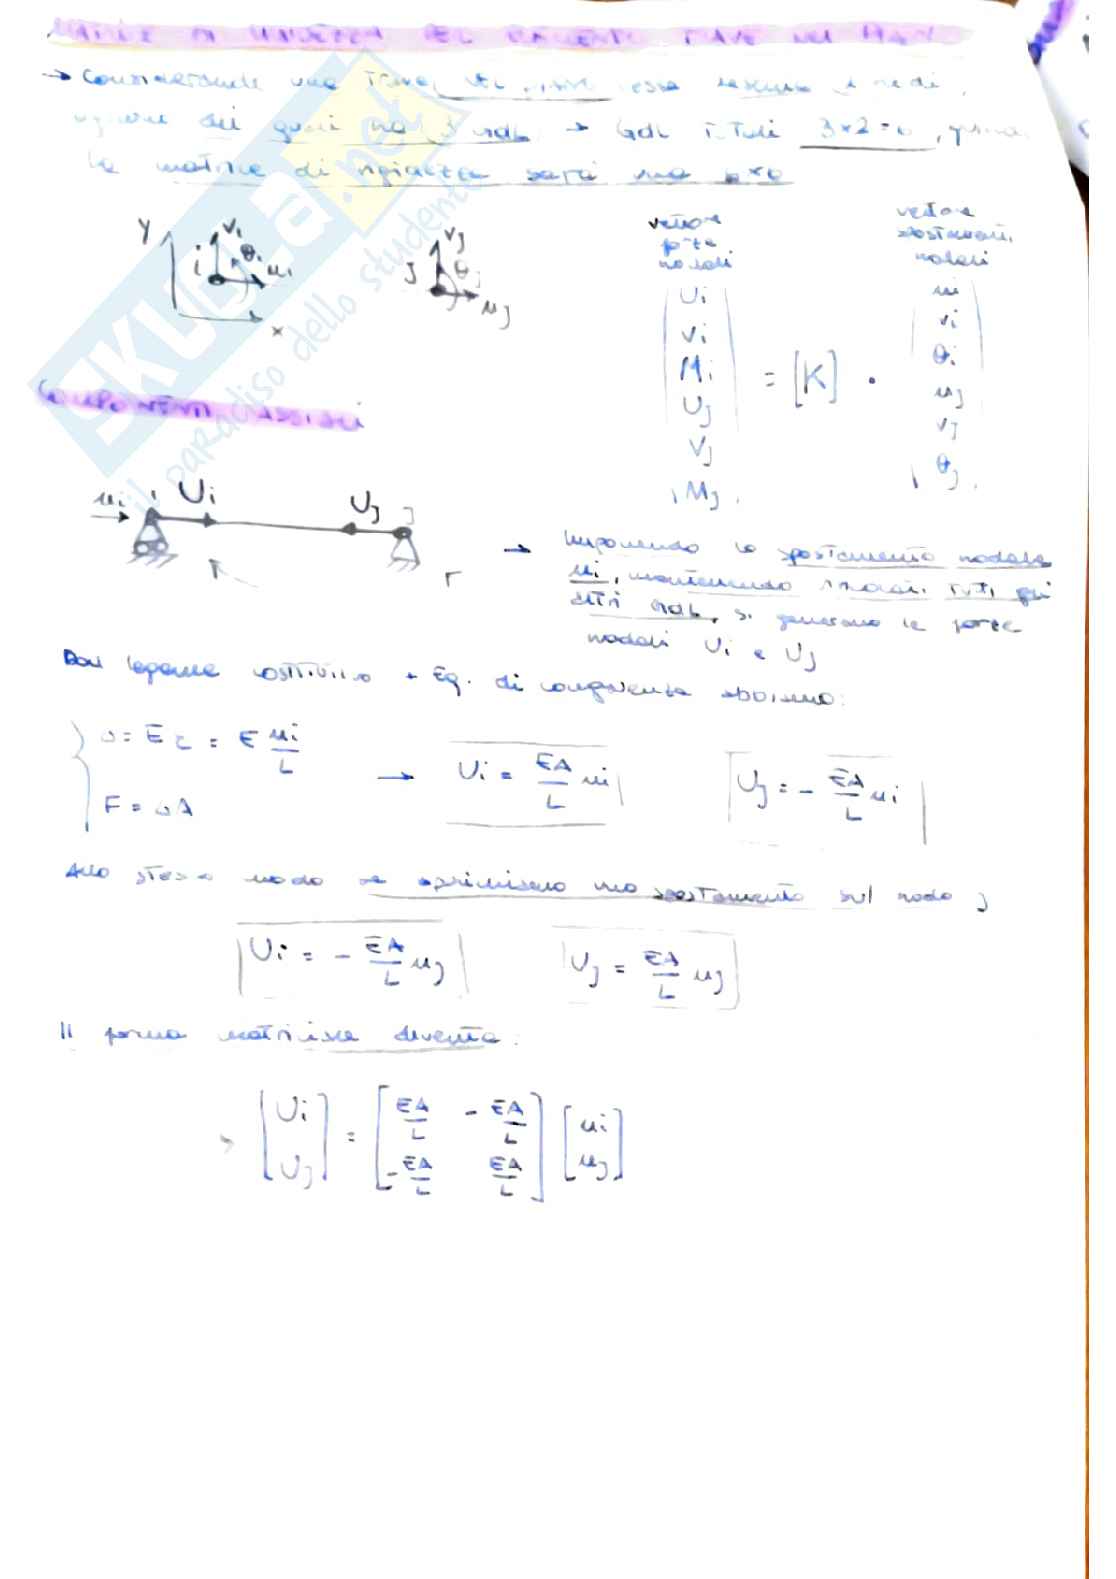 MATRICE DI RIGIDEZZA DEL ELEMENTO TRAVE NEL PIANO
→ Considerando una trave, nel piano essa 2 nodi,
ognuno dei quali ha 3 gdl → Gdl Totali 3×2=6, quindi
la matrice di rigidezza sarà una 6×6
y
x
i vi θi ui
J vJ θJ uJ
vettore forze nodali
vettore spostamenti nodali
[Ui Vi Mi UJ VJ MJ] = [K] · [ui vi θi uJ vJ θJ]
COMPONENTI ASSIALI
ui Ui UJ J
→ Imponendo lo spostamento nodale
ui, mantenendo tutti gli
altri gdl, si generano le forze
nodali Ui e UJ
Dal legame costitutivo + Eq. di congruenza abbiamo:
σ = E ε = E ui/L
F = σA
→ Ui = EA/L ui
UJ = - EA/L ui
Allo stesso modo se imprimiamo uno spostamento sul nodo J
Ui = - EA/L uJ
UJ = EA/L uJ
In forma matriciale diventa:
[Ui UJ] = [EA/L - EA/L - EA/L EA/L] [ui uJ]
SKUOLA.net
il paradiso dello studente